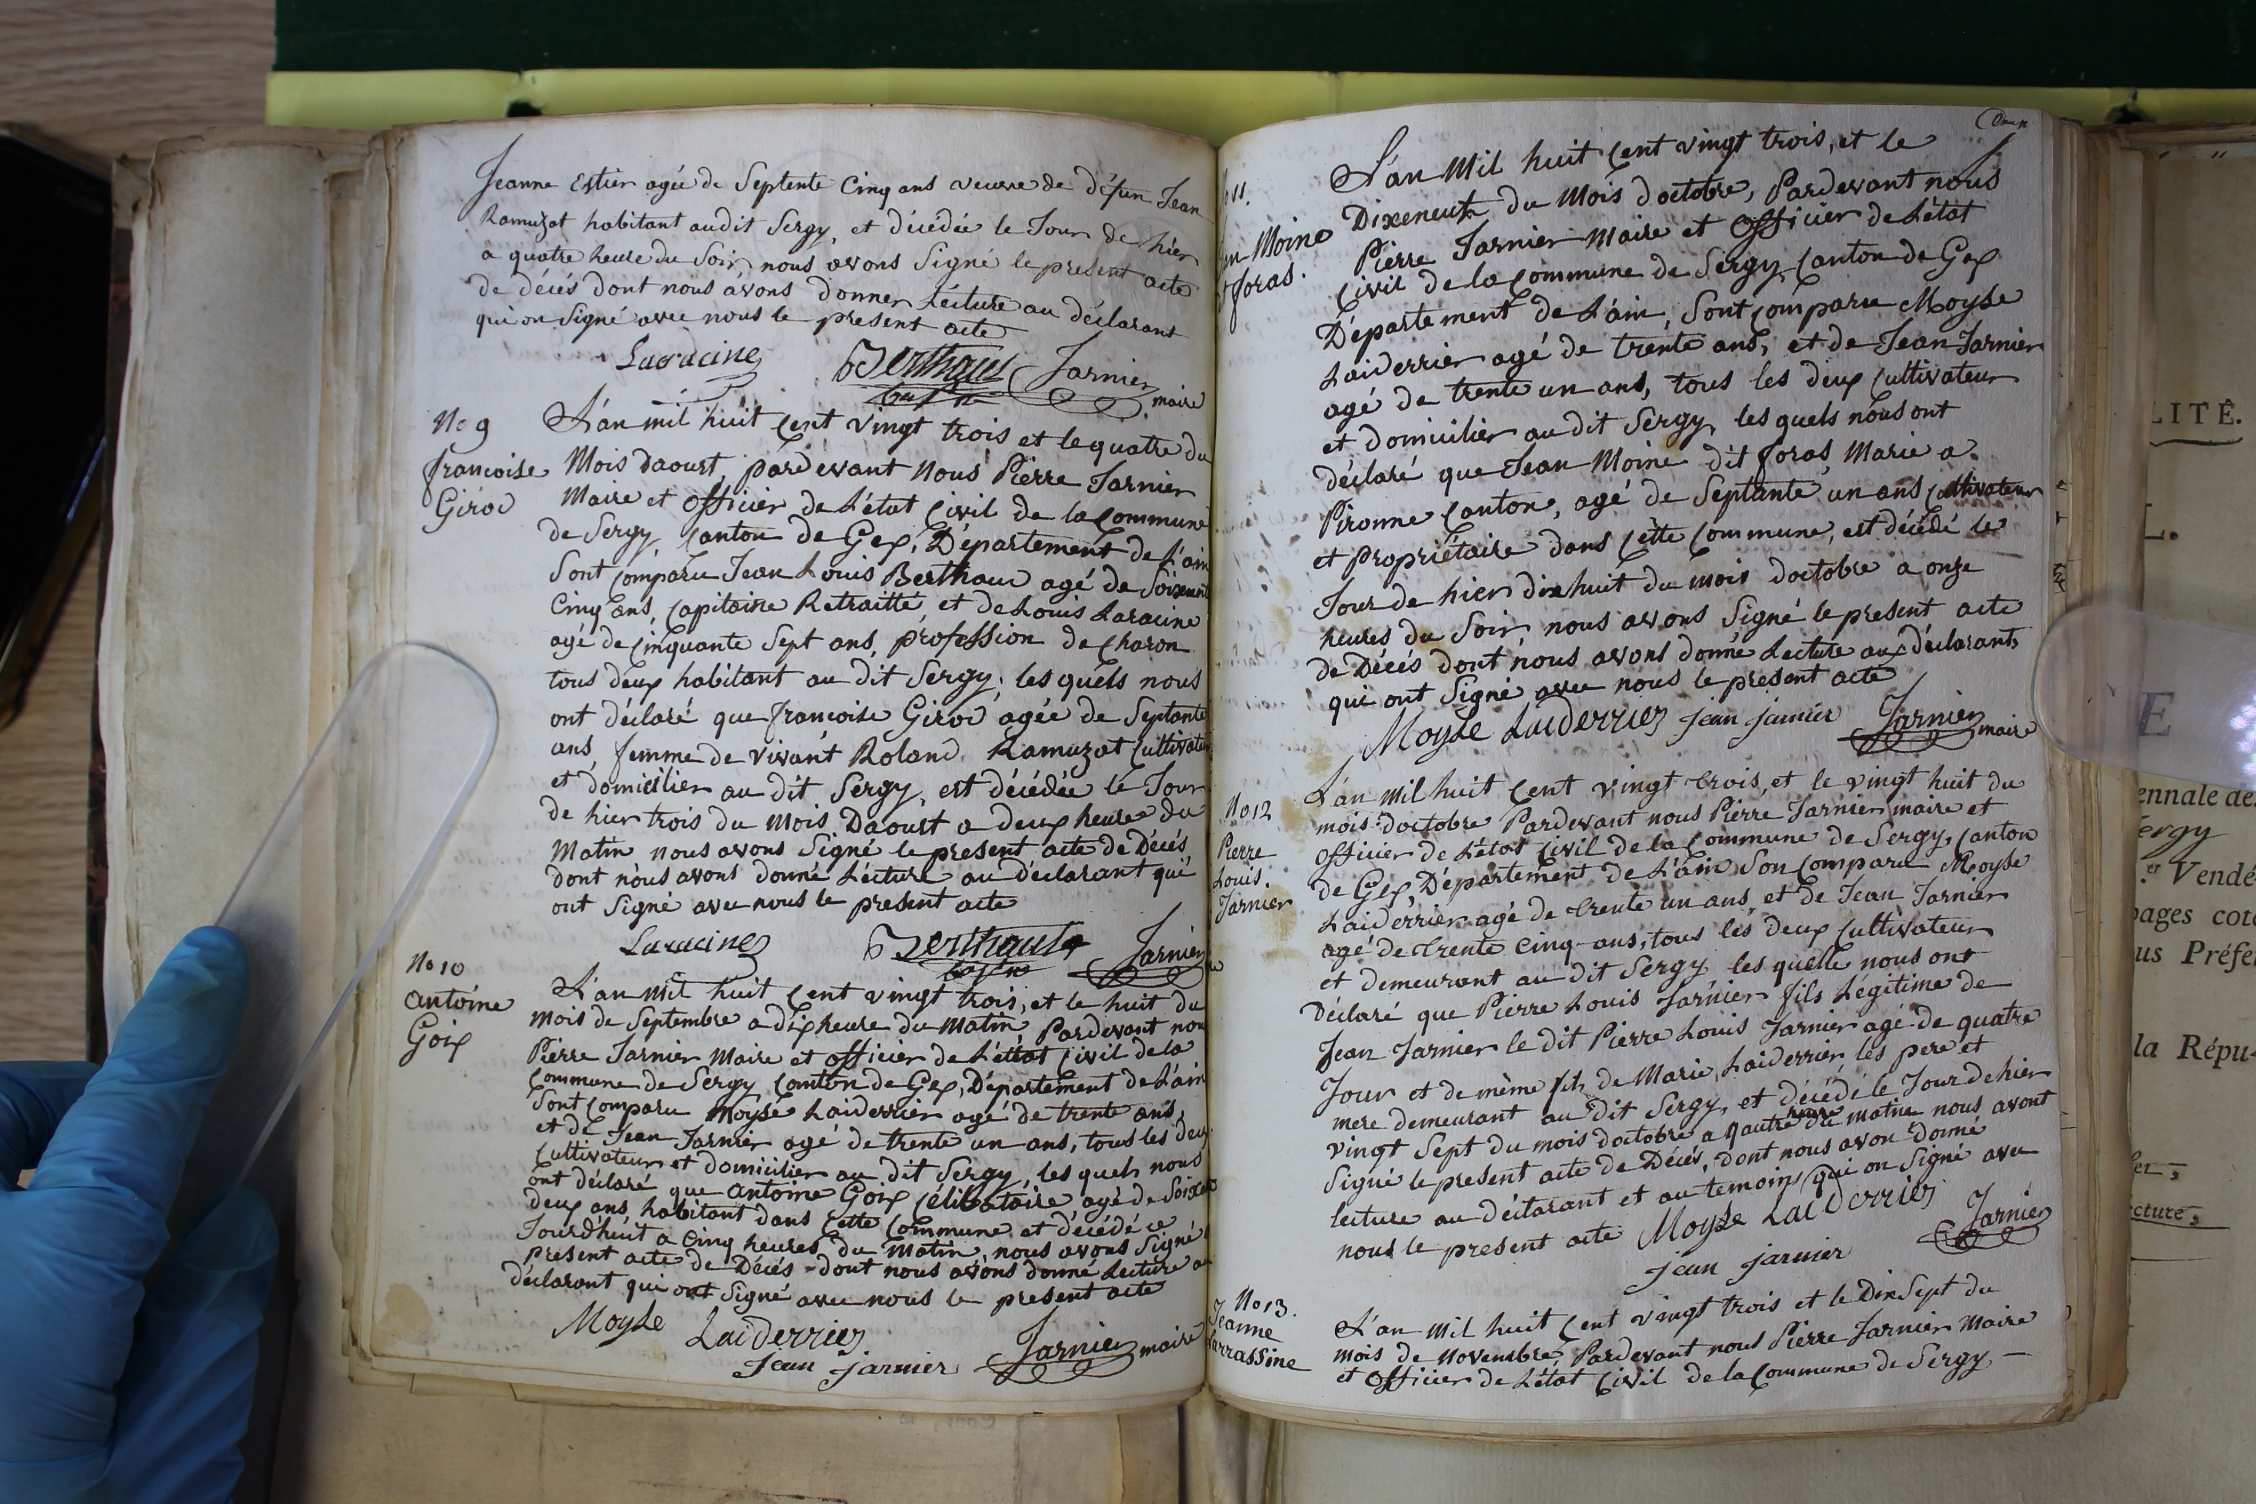 Jeanne Estier agée de Septente Cinq ans veuve de défun Jean
Ramuzat habitant audit Sergy, et décédée le Jour de hier
a quatre heure du Soir, nous avons Signé le present acte
de décés dont nous avons donner Lécture au déclarant
qui on Signé avec nous le present acte
Laracine Berthaud Jarnier maire
No 9
francoise
Girod
L'an mil huit Cent vingt trois et le quatre du
Mois daoust, pardevant Nous Pierre Jarnier
Maire et officier de L'état Civil de la Commune
de Sergy, Canton de Gex, Département de L'ain
Sont comparu Jean Louis Berthaud agé de Soixente
Cinq ans, Capitaine Retraitté, et de Louis Laracine
agé de Cinquante Sept ans, profession de Charon
tous deux habitant au dit Sergy, les quels nous
ont déclaré que francoise Girod agée de Septante
ans femme de vivant Roland Ramuzat Cultivateur
et domicilier au dit Sergy, est décédée le Jour
de hier trois du mois Daoust a deux heure du
Matin nous avons Signé le present acte de Décés
dont nous avons donné Lécture au déclarant qui
ont Signé avec nous le present acte
Laracine Berthaud Jarnier
No 10
antoine
Goix
L'an mil huit Cent vingt trois, et le huit du
mois de Septembre a dix heure du matin Pardevant nou
Pierre Jarnier Maire et officier de L'état Civil de la
Commune de Sergy Canton de Gex, Département de L'ain
Sont comparu Moyse Laiderrier agé de trente ans,
et de Jean Jarnier agé de trente un ans, tous les deux
Cultivateur et domicilier au dit Sergy, les quels nous
ont déclaré que antoine Goix Célibataire agé de Soixente
deux ans habitant dans Cette Commune et décédé ce
Jourd'huit a Cinq heures du matin, nous avons Signé
present acte de Décés dont nous avons donné Lecture au
déclarant qui ont Signé avec nous le present acte
Moyse Laiderrier
Jean jarnier Jarnier maire
Deux
11.
Moine
foras.
L'an Mil huit Cent vingt trois, et le
Dixeneuf du Mois d'octobre, Pardevant nous
Pierre Jarnier Maire et officier de L'état
Civil de la Commune de Sergy Canton de Gex
Département de L'ain, Sont comparu Moyse
Laiderrier agé de trente ans, et de Jean Jarnier
agé de trente un ans, tous les deux Cultivateur
et domicilier au dit Sergy, les quels nous ont
déclaré que Jean Moine dit foras Marie a
Pironne Canton, agé de Septante un ans Cultivateur
et propriétaire dans Cette Commune, est décédé le
Jour de hier dix huit du mois doctobre a onze
heures du Soir, nous avons Signé le present acte
de Décés dont nous avons donné Lecture aux déclarants
qui ont Signé avec nous le present acte
Moyse Laiderrier jean jarnier Jarnier maire
No 12
Pierre
Louis.
Jarnier
L'an Mil huit Cent vingt trois, et le vingt huit du
mois doctobre Pardevant nous Pierre Jarnier maire et
officier de L'état Civil de la Commune de Sergy, Canton
de Gex, Département de L'ain Son Comparu Moyse
Laiderrier agé de trente un ans, et de Jean Jarnier
agé de trente Cinq ans, tous les deux Cultivateur
et demeurant au dit Sergy les quelle nous ont
Déclaré que Pierre Louis Jarnier fils Légitime de
Jean Jarnier le dit Pierre Louis Jarnier agé de quatre
Jour et de même fils de Marie Laiderrier les pere et
mere demeurant au dit Sergy, et décédé le Jour de hier
vingt Sept du mois doctobre a quatre heure du matin nous avont
Signé le present acte de Décés, dont nous avon donné
lecture au déclarant et au temoins qui on Signé avec
nous le present acte Moyse Laiderrier
jean jarnier Jarnier
No 13.
Jeanne
L'an Mil huit Cent vingt trois et le Dix Sept du
mois de novembre, Pardevant nous Pierre Jarnier Maire
et officier de L'état Civil de la Commune de Sergy
LITÉ.
L.
E
ennale de
Sergy
er Vendé
pages cot
us Préfe
la Répu-
cture,